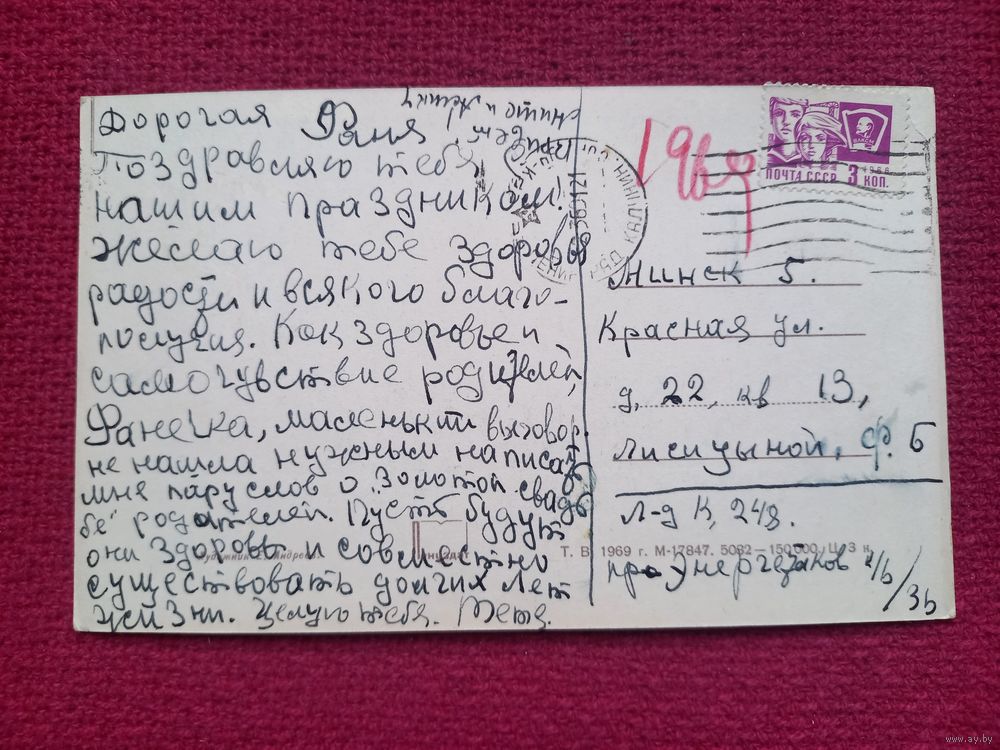 Дорогая Фаня
Привет
Ните и
Поздравляю тебя
нашим праздником!
Желаю тебе здоровья
радости и всякого благо-
получия. Как здоровье и
самочувствие родителей,
Фанечка, маленький выговор.
не нашла нужным написать
мне пару слов о „Золотой свадь
бе" родителей. Пусть будут
они здоровы и совместно
существовать долгих лет
жизни. Целую тебя. Тетя.
1969
ПОЧТА СССР 3 КОП.
1966
ВЛКСМ
Минск 5.
Красная ул.
д. 22, кв 13,
Лисицыной, Ф. Б
Л-д К, 248.
пр Энергетиков
Художник Андреев
Т. В. 1969 г. М-17847. 5082—150 000. Ц. 3 к.
www.ay.by